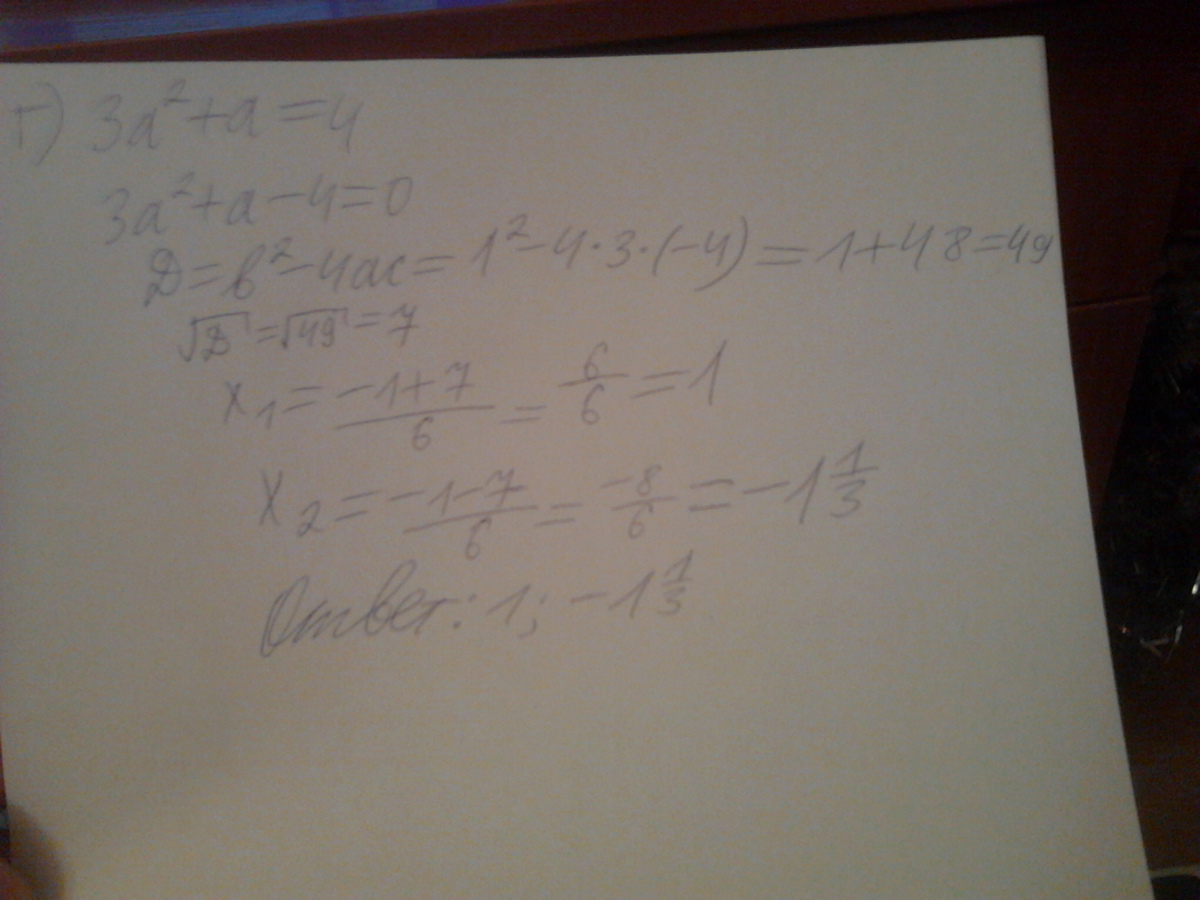 г) 3a²+a=4
3a²+a-4=0
D=b²-4ac=1²-4·3·(-4)=1+48=49
√D=√49=7
x₁=(-1+7)/6=6/6=1
x₂=(-1-7)/6=-8/6=-1 1/3
Ответ: 1; -1 1/3